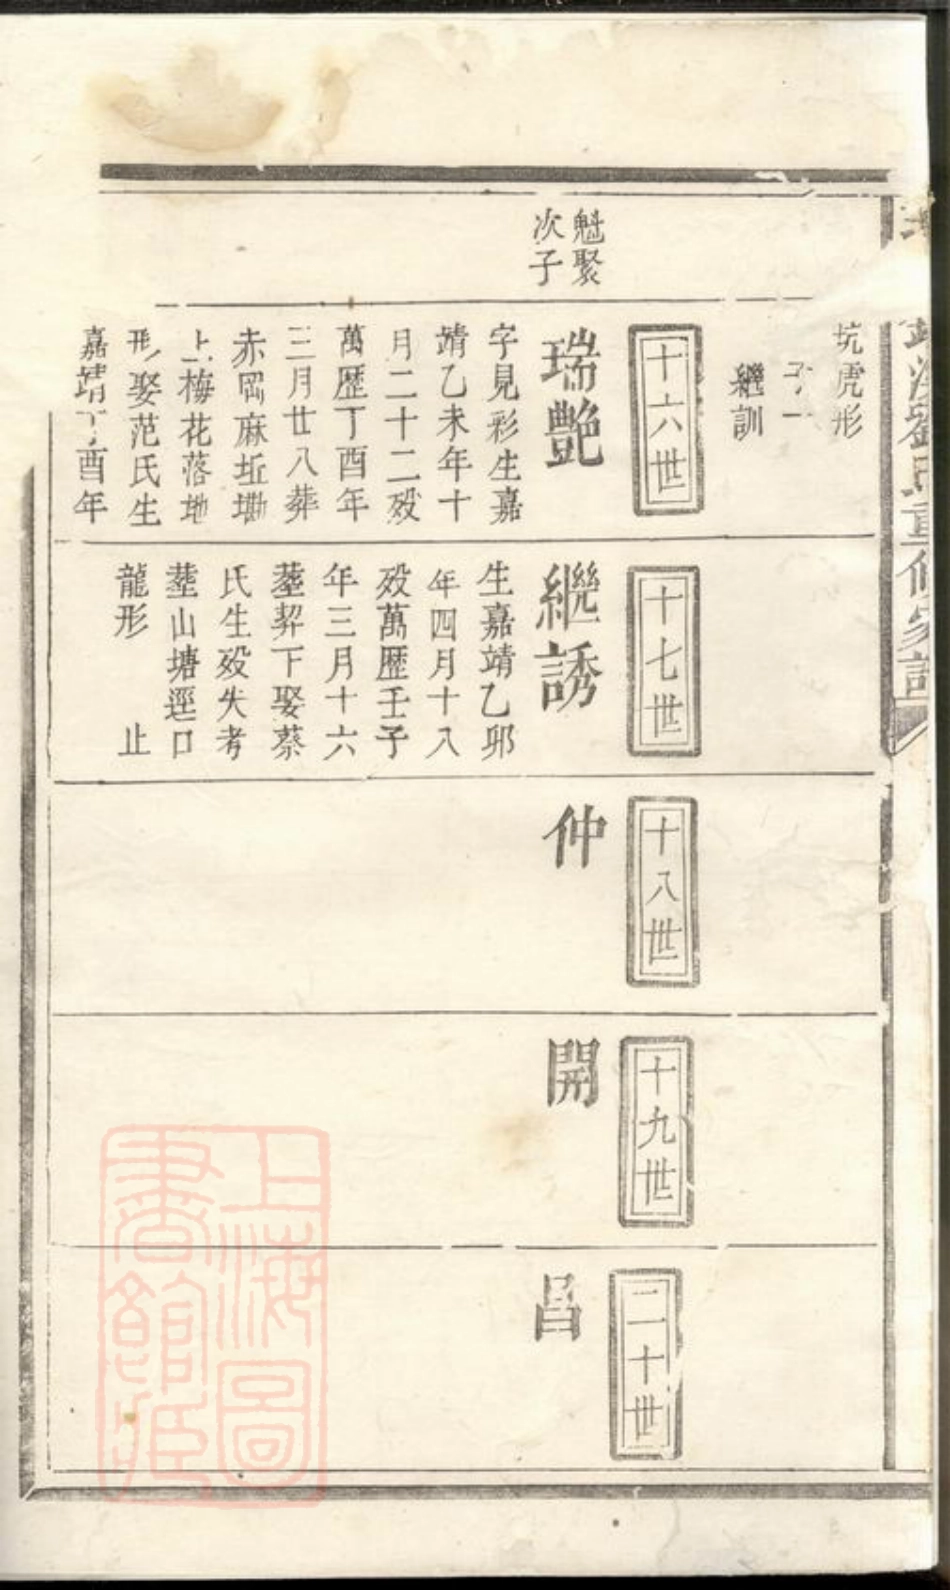 溪劉氏重修家譜
坑虎形
子一
繼訓
十六世
魁聚
次子
瑞艷
字見彩生嘉
靖乙未年十
月二十二殁
萬歷丁酉年
三月廿八葬
赤岡麻坵墈
上梅花落地
形娶范氏生
嘉靖丁酉年
十七世
繼誘
生嘉靖乙卯
年四月十八
殁萬歷壬子
年三月十六
塟契下娶蔡
氏生殁失考
塟山塘逕口
龍形 止
十八世
仲
十九世
開
二十世
昌
上海圖
書館藏